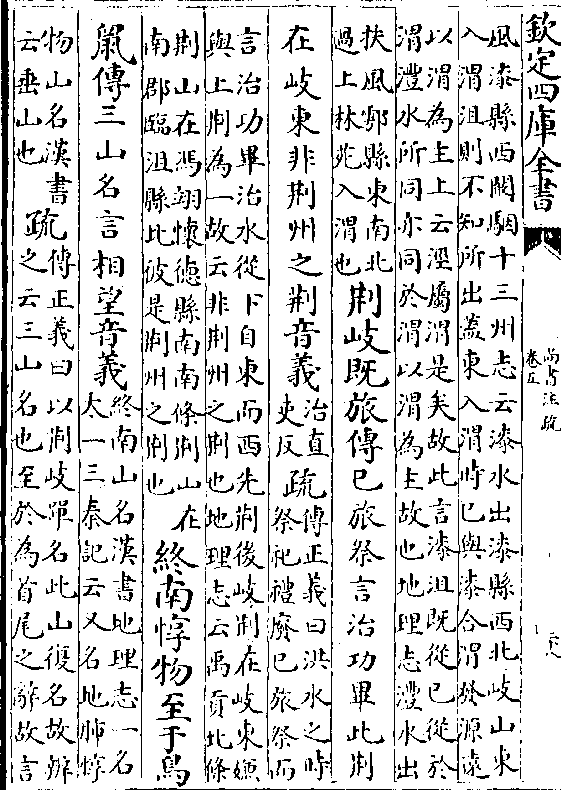 欽定四庫全書
尚書注疏
卷五
風漆縣西闞駰十三州志云漆水出漆縣西北岐山東
入渭沮則不知所出蓋東入渭時已與漆合渭發源遠
以渭為主上云涇屬渭是矣故此言漆沮既從已從於
渭灃水所同亦同於渭以渭為主故也地理志灃水出
扶風鄠縣東南北
過上林苑入渭也
荆岐既旅傳已旅祭言治功畢此荆
在岐東非荆州之荆音義
治直
吏反
疏
傳正義曰洪水之時
祭祀禮廢已旅祭而
言治功畢治水從下自東而西先荆後岐荆在岐東嫌
與上荆為一故云非荆州之荆也地理志云禹貢北條
荆山在馮翊懷德縣南南條荆山在
南郡臨沮縣北彼是荆州之荆也
終南惇物至于鳥
鼠傳三山名言相望音義
終南山名漢書地理志一名
太一三秦記云又名地肺惇
物山名漢書
云垂山也
疏
傳正義曰以荆岐單名此山復名故辨
之云三山名也至於為首尾之辭故言